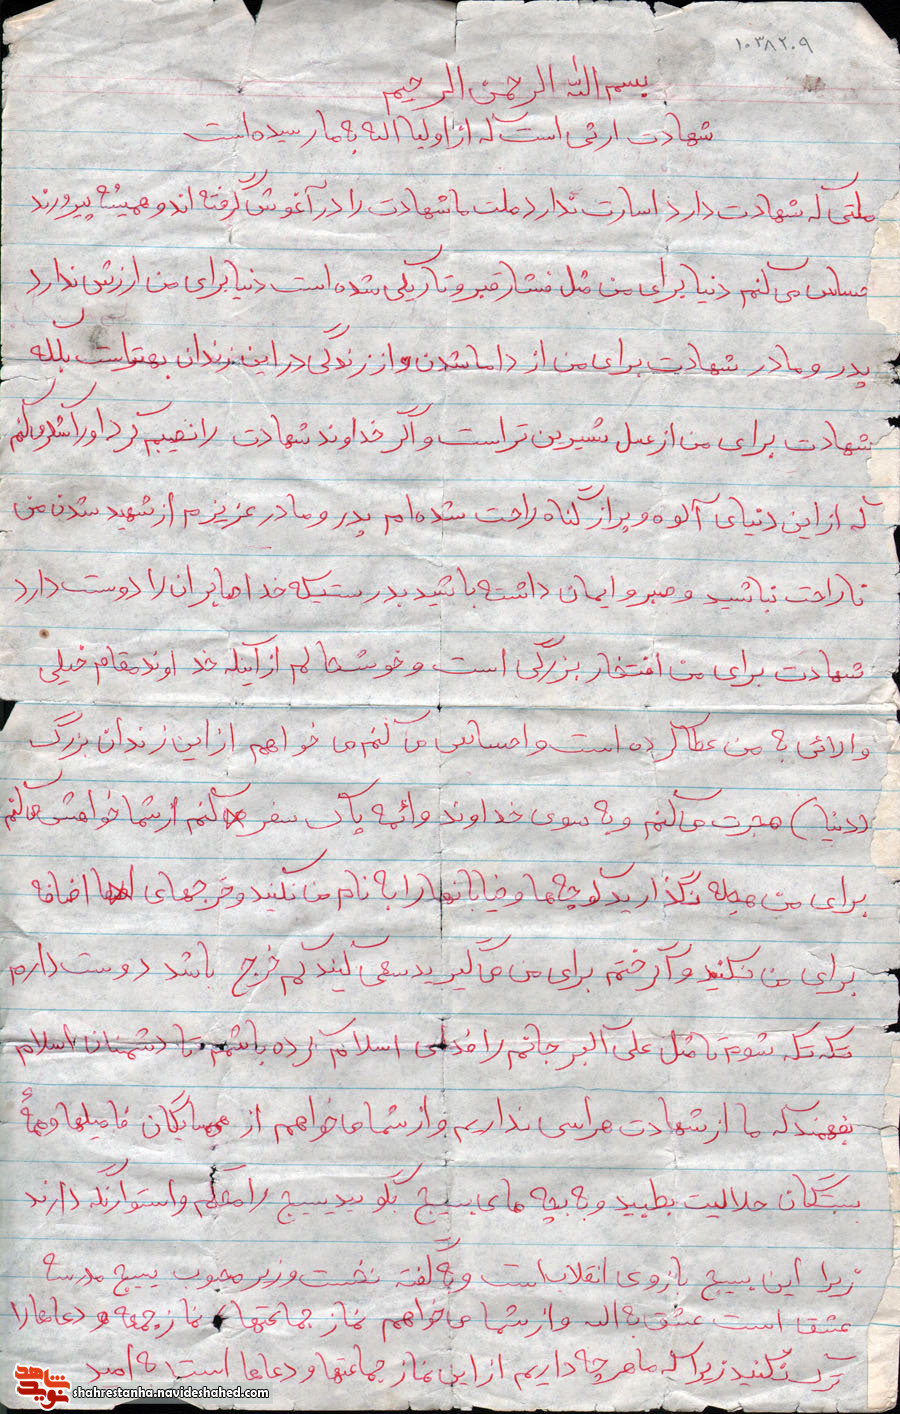 ۱۰۳۸۲۰۹
بسم الله الرحمن الرحیم
شهادت ارثی است که از اولیا الله به ما رسیده است
ملتی که شهادت دارد اسارت ندارد ملت ما شهادت را در آغوش گرفته اند و همیشه پیروزند
حساس می کنم دنیا برای من مثل فشار قبر و تاریکی شده است دنیا برای من ارزش ندارد
پدر و مادر شهادت برای من از داماشدن و از زندگی در این زندان بهتر است بلکه
شهادت برای من از عسل شیرین تر است و اگر خداوند شهادت را نصیبم کرد او را شکر می کنم
که از این دنیای آلوه و پر از گناه راحت شده ام پدر و مادر عزیزم از شهید شدن من
ناراحت نباشید و صبر و ایمان داشته باشید بدرستیکه خدا صابران را دوست دارد
شهادت برای من افتخار بزرگی است و خوشحالم از اینکه خداوند مقام خیلی
والائی به من عطا کرده است و احساس می کنم می خواهم از این زندان بزرگ
(دنیا) هجرت می کنم و به سوی خداوند و ائمه پاک سفر می کنم از شما خواهش می کنم
برای من حجله نگذارید کوچه ها و خیابانها را به نام من نکنید و خرجهای اضافه
برای من نکنید و اگر ختم برای من می گیرید سعی کنید کم خرج باشد دوست دارم
تکه تکه شوم تا مثل علی اکبر جانم را فدای اسلام کرده باشم تا دشمنان اسلام
بفهمند که ما از شهادت هراسی نداریم و از شما می خواهم از همسایگان فامیلها و همهٔ
بستگان حلالیت بطلبید و به بچه های بسیج بگویید بسیج را محکم و استوار نگه دارند
زیرا این بسیج بازوی انقلاب است و به گفته نخست وزیر محبوب بسیج مدرسه
عشق است عشق به الله و از شما می خواهم نماز جماعتها، نماز جمعه و دعاها را
ترک نکنید زیرا که ما هر چه داریم از این نماز جماعتها و دعاها است به امید
شاهد
نوید
shahrestanha.navideshahed.com